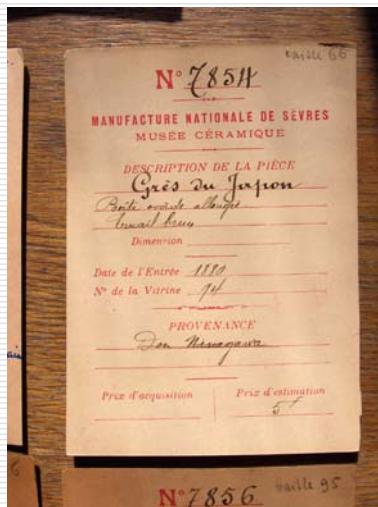 caisse 66
N° 7854
MANUFACTURE NATIONALE DE SÈVRES
MUSÉE CÉRAMIQUE
DESCRIPTION DE LA PIÈCE
Grès du Japon
Boîte ovoïde allongée
Émail brun
Dimension
Date de l'Entrée
N° de la Vitrine 94
PROVENANCE
Don Ninagawa
Prix d'acquisition Prix d'estimation
5
N° 7856 95